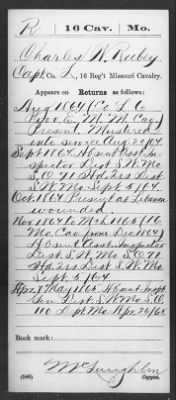 R | 16 Cav. | Mo.
Charles W. Rubey
Capt. Co. L, 16 Reg't Missouri Cavalry.
Appears on Returns as follows:
Aug 1864 (Co L 6
Prov. E. M. M. Cav)
Present. Mustered
into service Aug 20/64
Sept 1864 Absent Asst. In-
spector Dist S. W. Mo
S.O. 71 Hd. 2rs Dist
S. W. Mo. Sept 5/64.
Oct 1864 Present at Lebanon
wounded
Nov 1864 to Mch 1865 (16
Mo. Cav from Dec 1864)
Absent Asst. Inspector
Dist S. W. Mo S.O. 71
Hd. 2rs Dist S. W. Mo
Sept. 5/64
Apr. & May 1865 Absent Inspt
Gen Dist S. W. Mo S.O.
110 Dpt Mo. Apr. 26/65
Book mark:
McLaughlin
(546) Copyist.